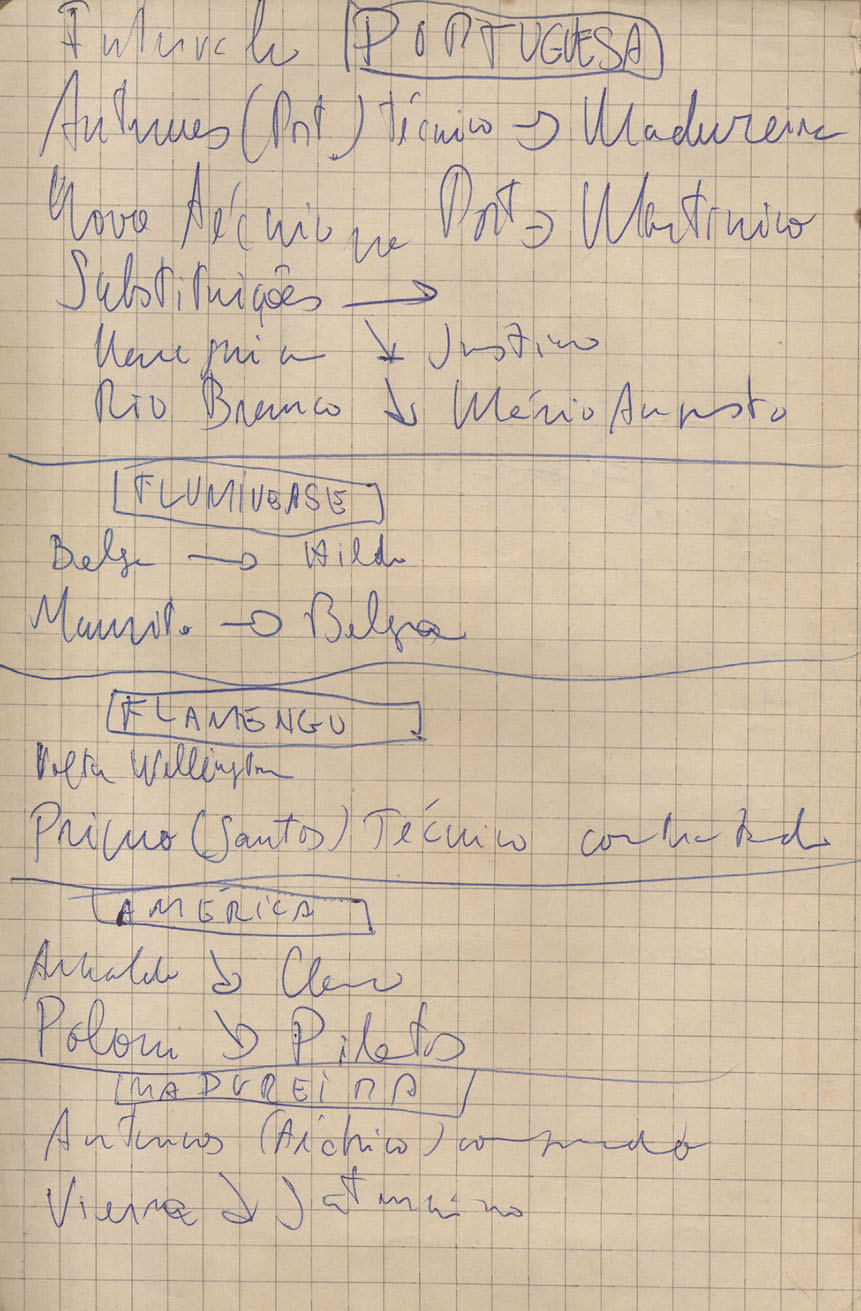 Intervalo PORTUGUESA
Antunes (Port.) técnico → Madureira
Novo técnico na Port → Martinico
Substituições →
↘ Justino
Rio Branco ↘ Mário Augusto
FLUMINENSE
Belga → Hildo
Maurito → Belga
FLAMENGO
Volta Wellington
Primo (Santos) Técnico contratado
AMÉRICA
Arnaldo ↘ Claro
Poloni ↘ Piletos
MADUREIRA
Antunes (técnico) comprado
Vieira ↘ Saturnino